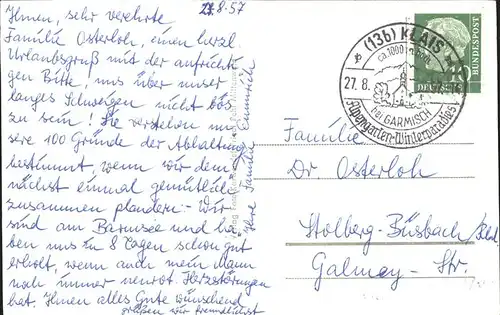 27.8.57
Ihnen, sehr verehrte
Familie Osterloh, einen herzl.
Urlaubsgruß mit der aufrichti-
gen Bitte, uns über unser
langes Schweigen nicht bös
zu sein! Sie verstehen un-
sere 100 Gründe der Abhaltung
bestimmt, wenn wir dem-
nächst einmal gemütlich
zusammen plaudern.- Wir
sind am Barmsee und ha-
ben uns in 8 Tagen schon gut
erholt, wenn auch mein Mann
noch immer Herzstörungen
hat. Ihnen alles Gute wünschend
grüßen wir freundlichst
Ihre Familie
(13b) KLAIS
ca. 1000 m
27.8.
bei GARMISCH
Alpengarten-Winterparadies
DEUTSCHE
BUNDESPOST
10
Familie
Dr Osterloh
Stolberg-Büsbach/Rhld
Galmey-Str.